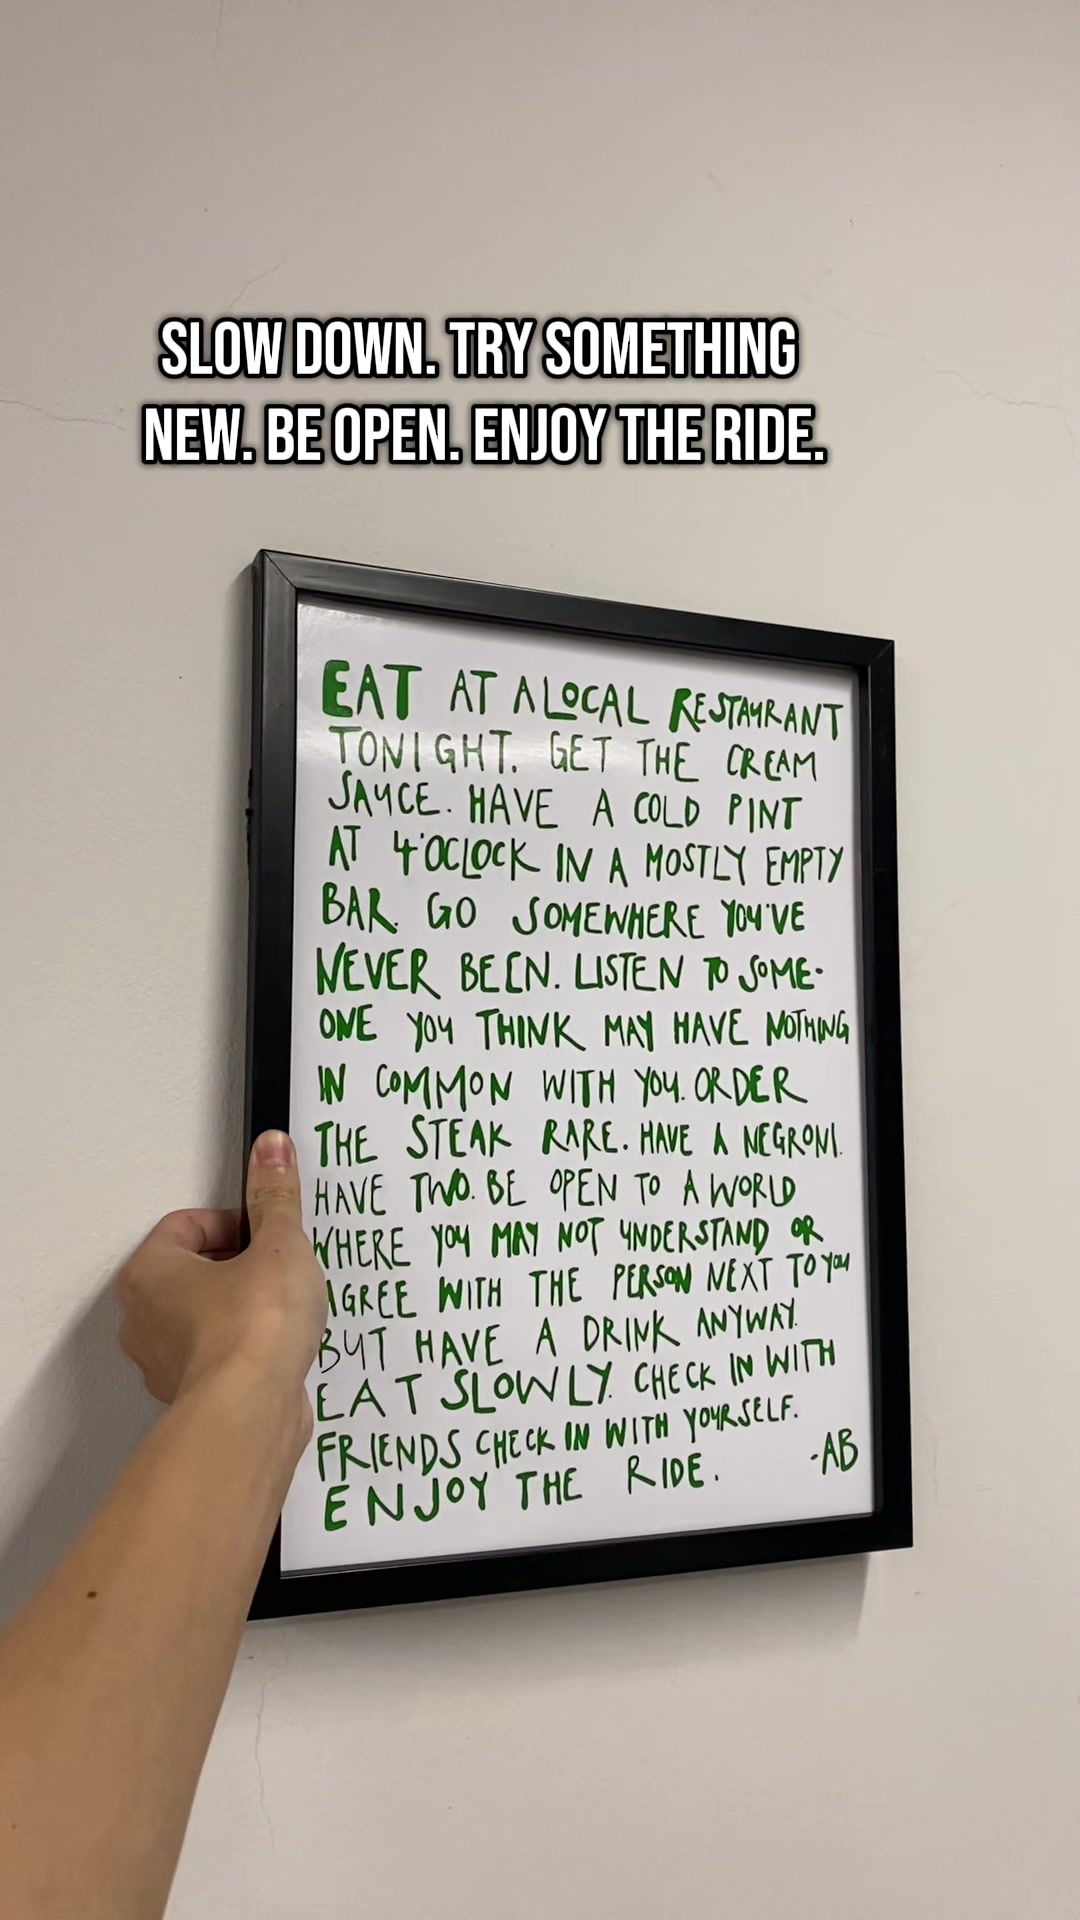 SLOW DOWN. TRY SOMETHING
NEW. BE OPEN. ENJOY THE RIDE.
EAT AT A LOCAL RESTAURANT
TONIGHT. GET THE CREAM
SAUCE. HAVE A COLD PINT
AT 4'OCLOCK IN A MOSTLY EMPTY
BAR. GO SOMEWHERE YOU'VE
NEVER BEEN. LISTEN TO SOME-
ONE YOU THINK MAY HAVE NOTHING
IN COMMON WITH YOU. ORDER
THE STEAK RARE. HAVE A NEGRONI.
HAVE TWO. BE OPEN TO A WORLD
WHERE YOU MAY NOT UNDERSTAND OR
AGREE WITH THE PERSON NEXT TO YOU
BUT HAVE A DRINK ANYWAY.
EAT SLOWLY. CHECK IN WITH
FRIENDS CHECK IN WITH YOURSELF.
ENJOY THE RIDE. -AB